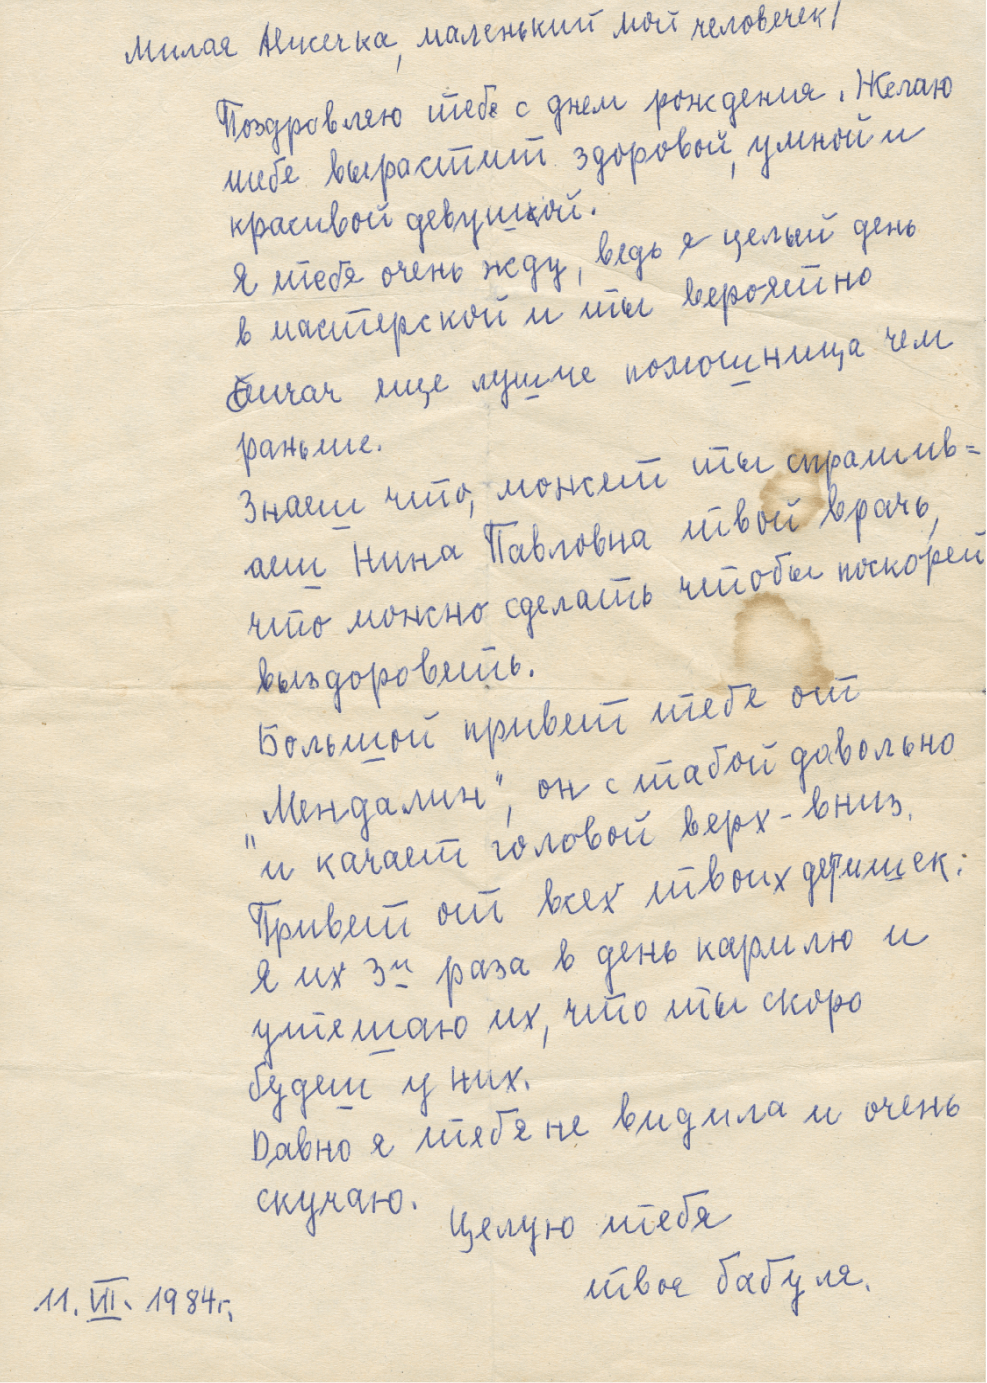 Милая Алисечка, маленький мой человечек!
Поздровляю тебе с днем рождения. Желаю
тебе вырастит здоровой, умной и
красивой девушкой.
Я тебя очень жду, ведь я целый день
в мастерской и ты вероятно
еще лушше помошница чем
раньше.
Знаеш что, может ты спрашив=
аеш Нина Павловна твой врачь,
что можно сделать чтобы поскорей
выздороветь.
Большой привет тебе от
"Мендалин", он с табой давольно
и качает головой верх-вниз.
Привет от всех твоих детишек.
Я их 3и раза в день кармлю и
утешаю их, что ты скоро
будеш у них.
Давно я тебя не видила и очень
скучаю.
Целую тебя
твоя бабуля.
11. VII. 1984г.